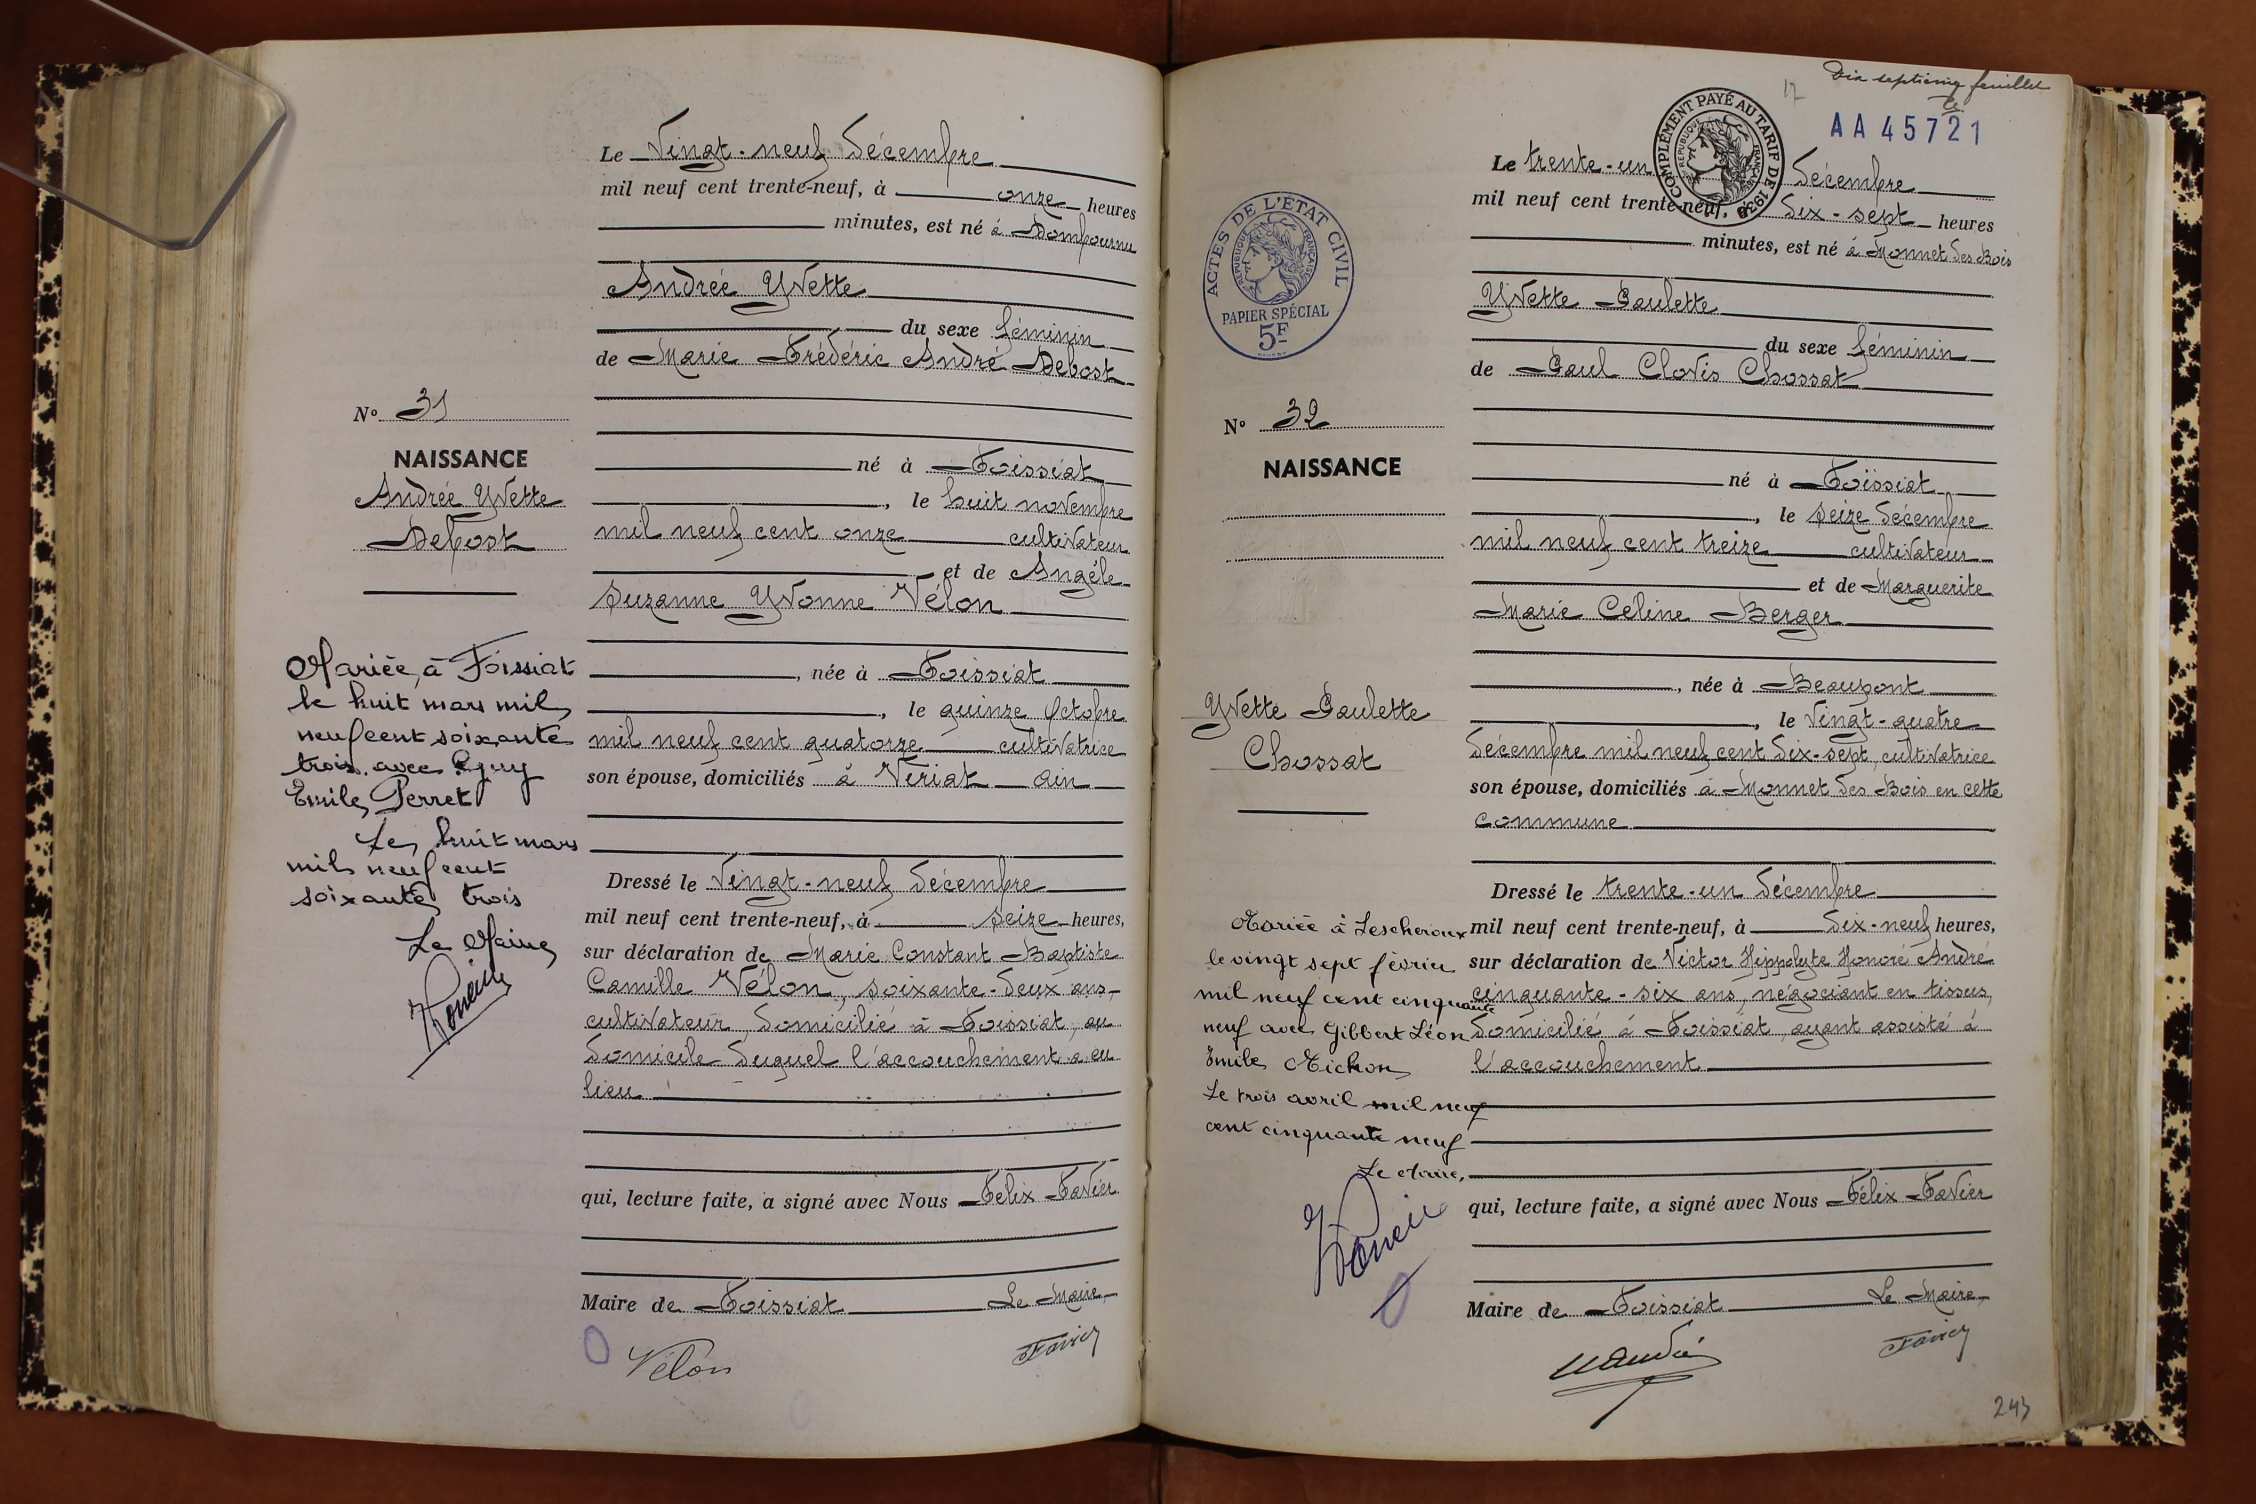 Le Vingt-neuf décembre
mil neuf cent trente-neuf, à onze heures
minutes, est né à Dompournu
Andrée Yvette
du sexe féminin
de Marie Frédéric André Debost
né à Foissiat
, le huit novembre
mil neuf cent onze cultivateur
et de Angèle
Suzanne Yvonne Vélon
, née à Foissiat
, le quinze octobre
mil neuf cent quatorze cultivatrice
son épouse, domiciliés à Viriat Ain
Dressé le Vingt-neuf décembre
mil neuf cent trente-neuf, à seize heures,
sur déclaration de Marie Constant Baptiste
Camille Vélon, soixante-deux ans,
cultivateur, domicilié à Foissiat, au
domicile duquel l'accouchement a eu
lieu
qui, lecture faite, a signé avec Nous Félix Favier
Maire de Foissiat Le Maire,
Vélon Favier
N° 31
NAISSANCE
Andrée Yvette
Debost
Mariée à Foissiat
le huit mars mil
neuf cent soixante
trois avec Guy
Emile Perret
Le huit mars
mil neuf cent
soixante trois
Le Maire
Dix septième feuillet
17
AA 45721
COMPLÉMENT PAYÉ AU TARIF DE 1939
RÉPUBLIQUE FRANÇAISE
ACTES DE L'ÉTAT CIVIL
RÉPUBLIQUE FRANÇAISE
PAPIER SPÉCIAL
5F
Le trente-un décembre
mil neuf cent trente-neuf, à dix-sept heures
minutes, est né à Monnet des Bois
Yvette Paulette
du sexe féminin
de Paul Clovis Chossat
né à Foissiat
, le seize décembre
mil neuf cent treize cultivateur
et de Marguerite
Marie Céline Berger
, née à Beaupont
, le vingt-quatre
décembre mil neuf cent dix-sept, cultivatrice
son épouse, domiciliés à Monnet des Bois en cette
commune
Dressé le trente-un décembre
mil neuf cent trente-neuf, à dix-neuf heures,
sur déclaration de Victor Hippolyte Honoré André
cinquante-six ans, négociant en tissus,
domicilié à Foissiat, ayant assisté à
l'accouchement
qui, lecture faite, a signé avec Nous Félix Favier
Maire de Foissiat Le Maire,
Favier
N° 32
NAISSANCE
Yvette Paulette
Chossat
Mariée à Lescheroux
le vingt sept février
mil neuf cent cinquante
neuf avec Gibbert Léon
Emile Michon
Le trois avril mil neuf
cent cinquante neuf
Le Maire,
243